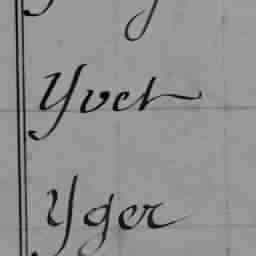 Yvet
Yger